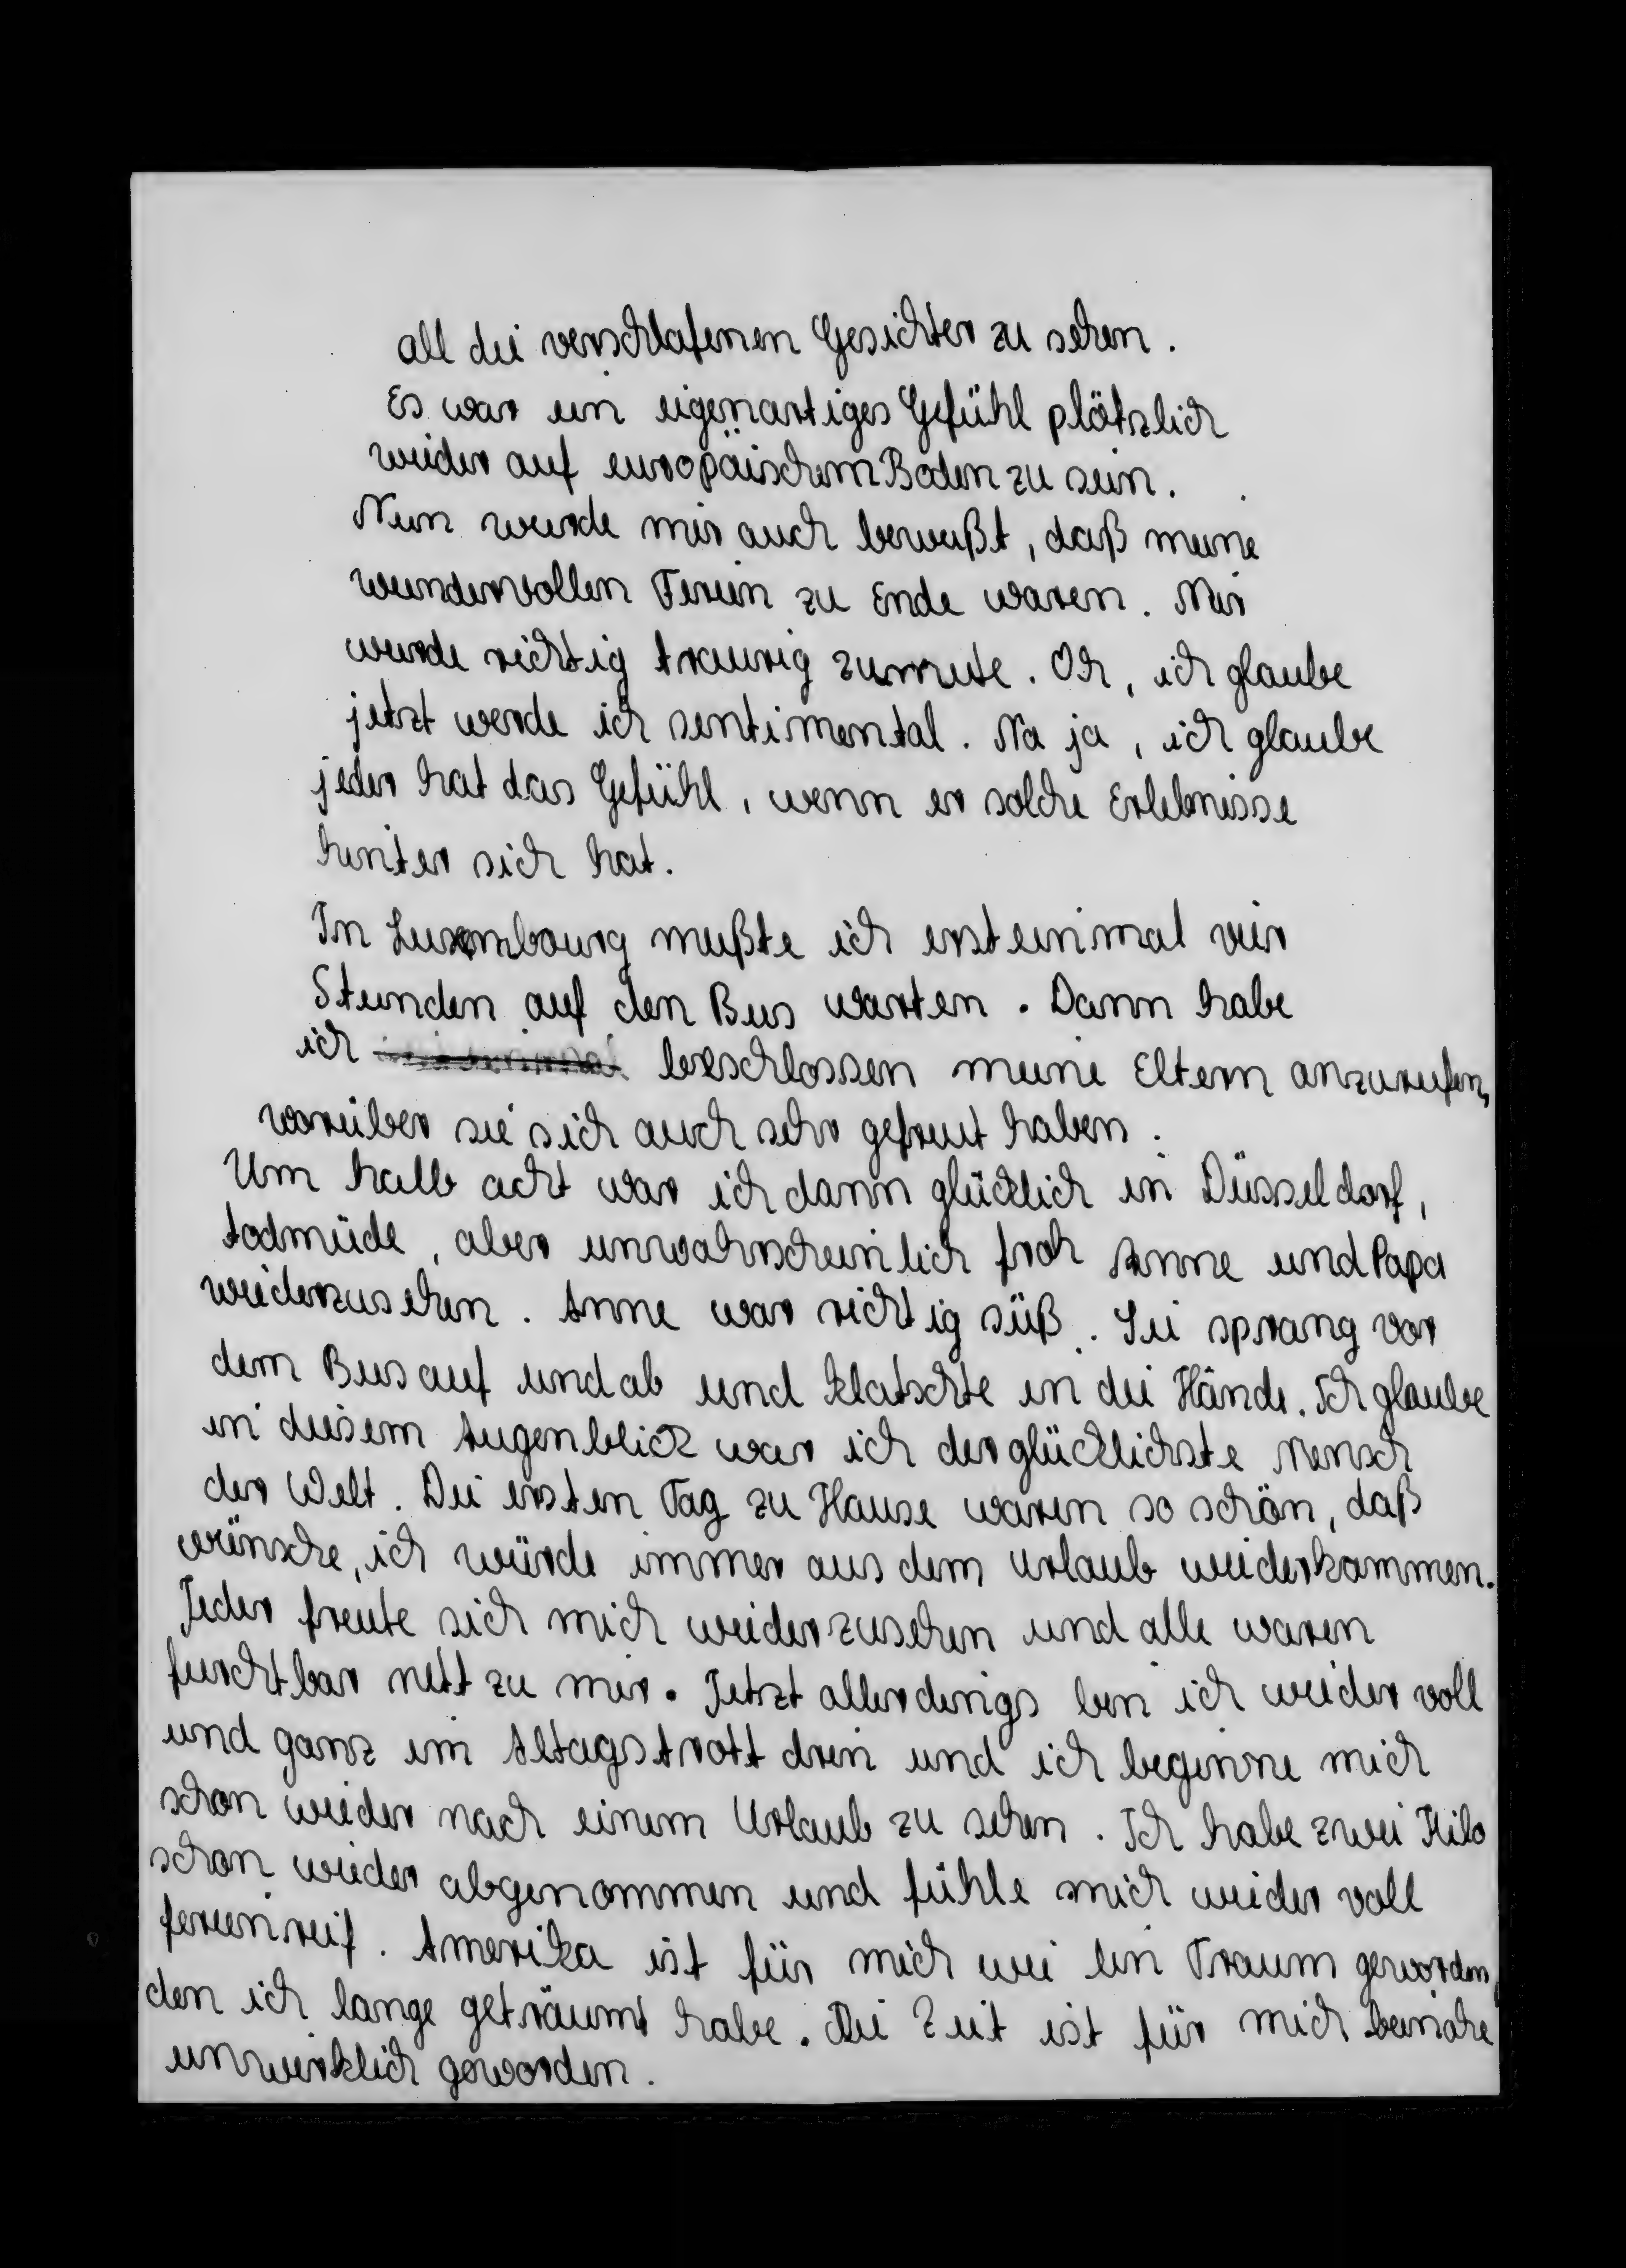 all die verschlafenen Gesichter zu sehen.
Es war ein eigenartiges Gefühl plötzlich
wieder auf europäischem Boden zu sein.
Nun wurde mir auch bewußt, daß meine
wundervollen Ferien zu Ende waren. Mir
wurde richtig traurig zumute. Oh, ich glaube
jetzt werde ich sentimental. Na ja, ich glaube
jeder hat das Gefühl, wenn er solche Erlebnisse
hinter sich hat.
In Luxembourg mußte ich ersteinmal vier
Stunden auf den Bus warten. Dann habe
ich beschlossen meine Eltern anzurufen,
worüber sie sich auch sehr gefreut haben.
Um halb acht war ich dann glücklich in Düsseldorf,
todmüde, aber unwahrscheinlich froh Anne und Papa
wiederzusehen. Anne war richtig süß. Sie sprang vor
dem Bus auf und ab und klatschte in die Hände. Ich glaube
in diesem Augenblick war ich der glücklichste Mensch
der Welt. Die ersten Tag zu Hause waren so schön, daß
wünsche, ich würde immer aus dem Urlaub wiederkommen.
Jeder freute sich mich wiederzusehen und alle waren
furchtbar nett zu mir. Jetzt allerdings bin ich wieder voll
und ganz im Alltagstrott drin und ich beginne mich
schon wieder nach einem Urlaub zu sehen. Ich habe zwei Kilo
schon wieder abgenommen und fühle mich wieder voll
ferienreif. Amerika ist für mich wie ein Traum geworden,
den ich lange geträumt habe. Die Zeit ist für mich beinahe
unwirklich geworden.